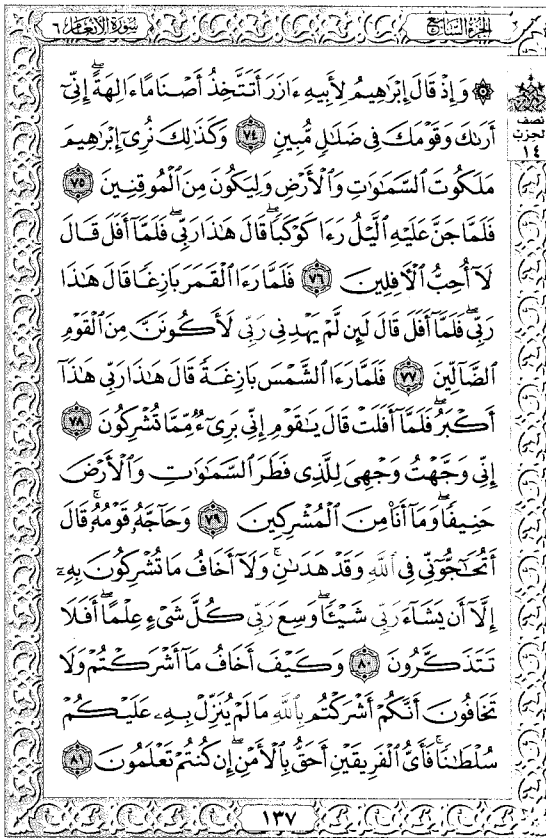 الجزء السابع
سورة الأنعام ٦
۞ وَإِذْ قَالَ إِبْرَٰهِيمُ لِأَبِيهِ ءَازَرَ أَتَتَّخِذُ أَصْنَامًا ءَالِهَةً ۖ إِنِّىٓ
نصف
الحزب
١٤
أَرَىٰكَ وَقَوْمَكَ فِى ضَلَٰلٍ مُّبِينٍ ٧٤ وَكَذَٰلِكَ نُرِىٓ إِبْرَٰهِيمَ
مَلَكُوتَ ٱلسَّمَٰوَٰتِ وَٱلْأَرْضِ وَلِيَكُونَ مِنَ ٱلْمُوقِنِينَ ٧٥
فَلَمَّا جَنَّ عَلَيْهِ ٱلَّيْلُ رَءَا كَوْكَبًا ۖ قَالَ هَٰذَا رَبِّى ۖ فَلَمَّآ أَفَلَ قَالَ
لَآ أُحِبُّ ٱلْءَافِلِينَ ٧٦ فَلَمَّا رَءَا ٱلْقَمَرَ بَازِغًا قَالَ هَٰذَا
رَبِّى ۖ فَلَمَّآ أَفَلَ قَالَ لَئِن لَّمْ يَهْدِنِى رَبِّى لَأَكُونَنَّ مِنَ ٱلْقَوْمِ
ٱلضَّآلِّينَ ٧٧ فَلَمَّا رَءَا ٱلشَّمْسَ بَازِغَةً قَالَ هَٰذَا رَبِّى هَٰذَآ
أَكْبَرُ ۖ فَلَمَّآ أَفَلَتْ قَالَ يَٰقَوْمِ إِنِّى بَرِىٓءٌ مِّمَّا تُشْرِكُونَ ٧٨
إِنِّى وَجَّهْتُ وَجْهِىَ لِلَّذِى فَطَرَ ٱلسَّمَٰوَٰتِ وَٱلْأَرْضَ
حَنِيفًا ۖ وَمَآ أَنَا۠ مِنَ ٱلْمُشْرِكِينَ ٧٩ وَحَآجَّهُۥ قَوْمُهُۥ ۚ قَالَ
أَتُحَٰٓجُّوٓنِّى فِى ٱللَّهِ وَقَدْ هَدَىٰنِ ۚ وَلَآ أَخَافُ مَا تُشْرِكُونَ بِهِۦٓ
إِلَّآ أَن يَشَآءَ رَبِّى شَيْـًٔا ۗ وَسِعَ رَبِّى كُلَّ شَىْءٍ عِلْمًا ۗ أَفَلَا
تَتَذَكَّرُونَ ٨٠ وَكَيْفَ أَخَافُ مَآ أَشْرَكْتُمْ وَلَا
تَخَافُونَ أَنَّكُمْ أَشْرَكْتُم بِٱللَّهِ مَا لَمْ يُنَزِّلْ بِهِۦ عَلَيْكُمْ
سُلْطَٰنًا ۚ فَأَىُّ ٱلْفَرِيقَيْنِ أَحَقُّ بِٱلْأَمْنِ ۖ إِن كُنتُمْ تَعْلَمُونَ ٨١
١٣٧